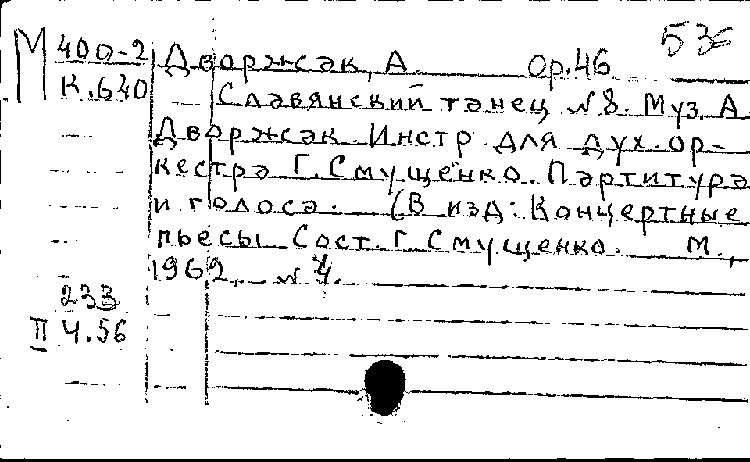 536
М 400-2 Дворжак, А. ор.46
К.640 Славянский танец №8. Муз. А.
Дворжак. Инстр. для дух. ор-
кестра Г. Смущенко. Партитура
и голоса. (В изд: Концертные
пьесы. Сост. Г. Смущенко. М.,
1962, №4.
233
II 4.56